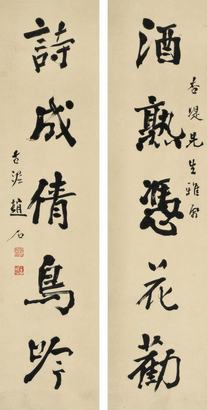 杏堤先生雅
酒熟憑花勸
詩成倩鳥吟
古泥趙石